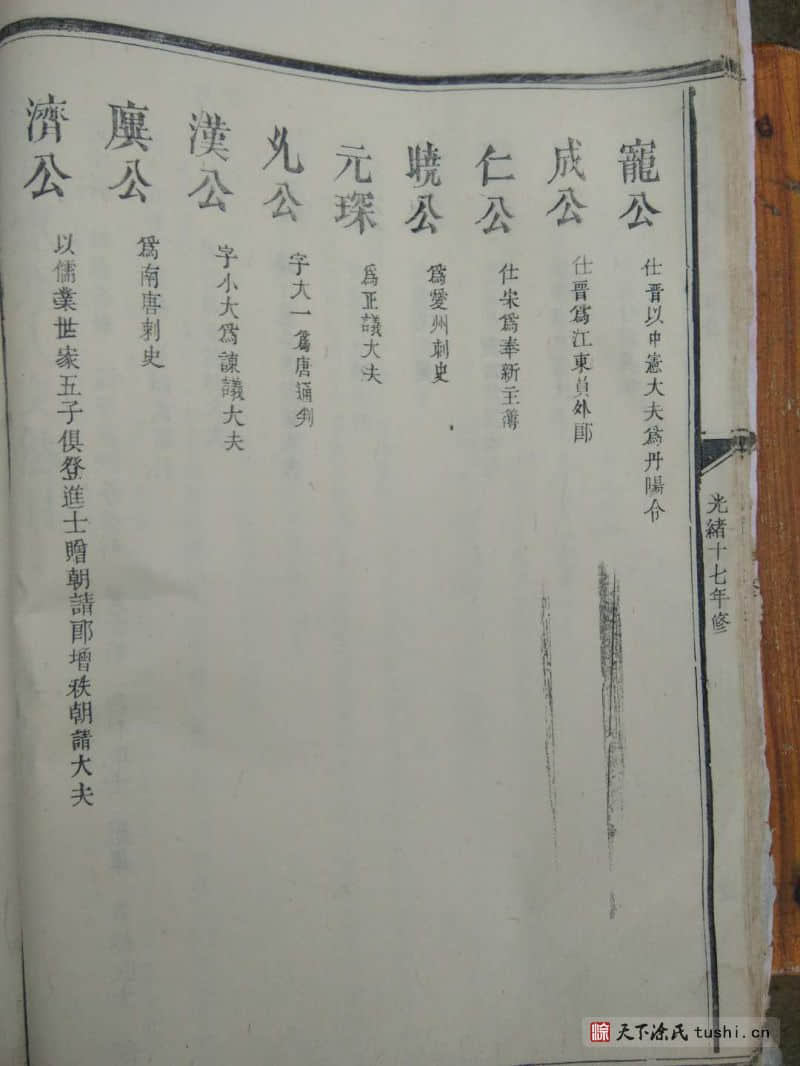 寵公 仕晋以中憲大夫爲丹陽令
成公 仕晋爲江東員外郎
仁公 仕宋爲奉新主簿
曉公 爲愛州刺史
元琛 爲正議大夫
公 字大一爲唐通判
漢公 字小大爲諫議大夫
公 爲南唐刺史
濟公 以儒業世家五子俱登進士贈朝請郎增秩朝請大夫
光緒十七年修
天下涂氏 tushi.cn